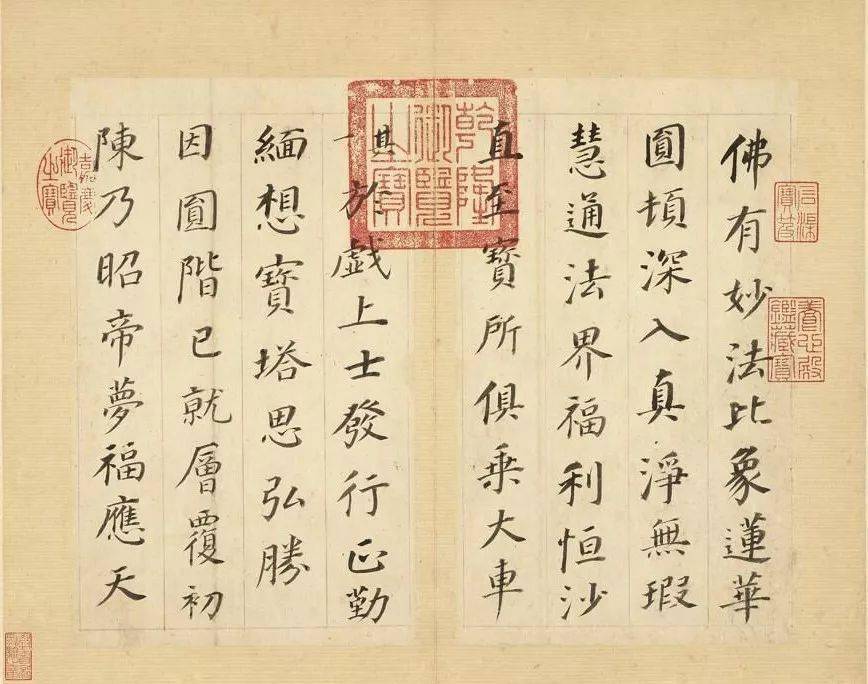 石渠寶笈
養心殿鑑藏寶
佛有妙法比象蓮華
圓頓深入真淨無瑕
慧通法界福利恒沙
直至寶所俱乘大車
乾隆御覽之寶
其一於戲上士發行正勤
緬想寶塔思弘勝
因圓階已就層覆初
陳乃昭帝夢福應天
嘉慶御覽之寶